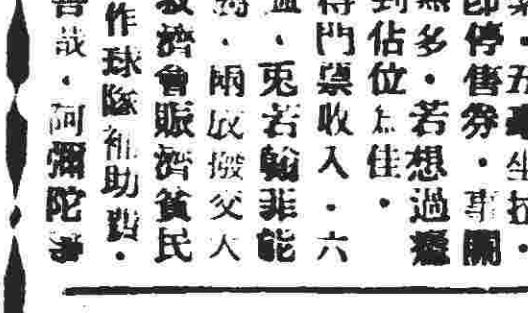 即停售券．事關
無多．若想過癮
到佔位為佳．
得門票收入．六
血．兎若翰菲能
兩成撥交人
救濟會賑濟貧民
作球隊補助費．
善哉．阿彌陀